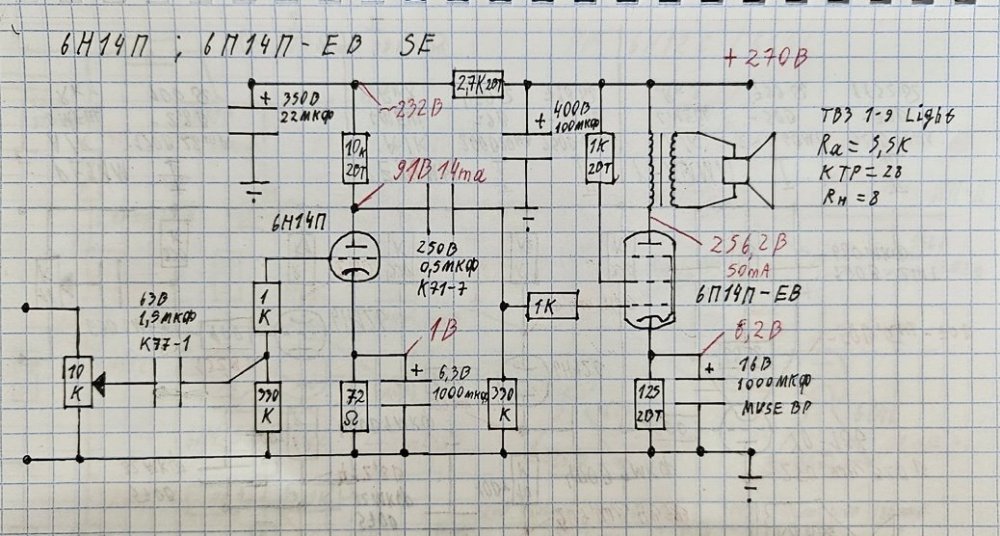 6Н14П ; 6П14П-ЕВ SE
+270В
350В
22мкф
~232В
2,7К 2ВТ
400В
100мкф
10к
2ВТ
1К
2ВТ
ТВЗ 1-9 Light
Ra = 5,5К
КТР = 28
Rн = 8
91В 14ma
6Н14П
250В
0,5мкф
К71-7
256,2В
50mA
6П14П-ЕВ
63В
1,5мкф
К77-1
1
К
1К
1В
8,2В
10
К
330
К
72
Ω
6,3В
1000мкф
330
К
125
2ВТ
16В
1000мкф
MUSE BP